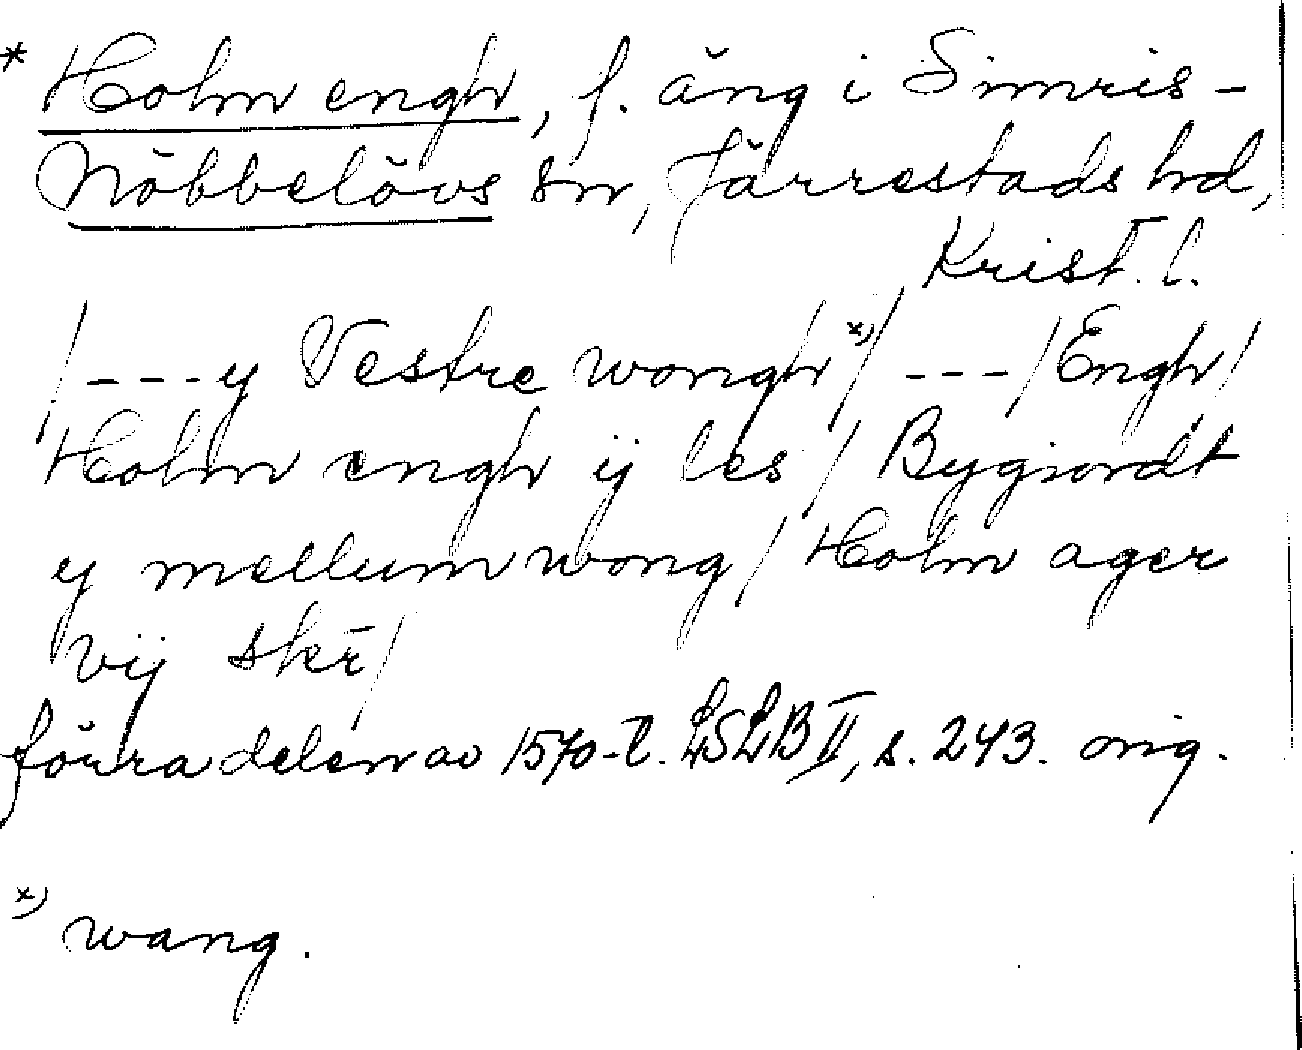 * Holm engh, f. äng i Simris-
Nöbbelövs sn, Järrestads hd,
Krist. l.
/---y Vestre wongh x)/ ---/Engh/
Holm engh ij les/ Bygiordt
y mellum wong/ Holm ager
vij skr/
förra delen av 1570-t. LSLB II, s. 243. orig.
x) wang.